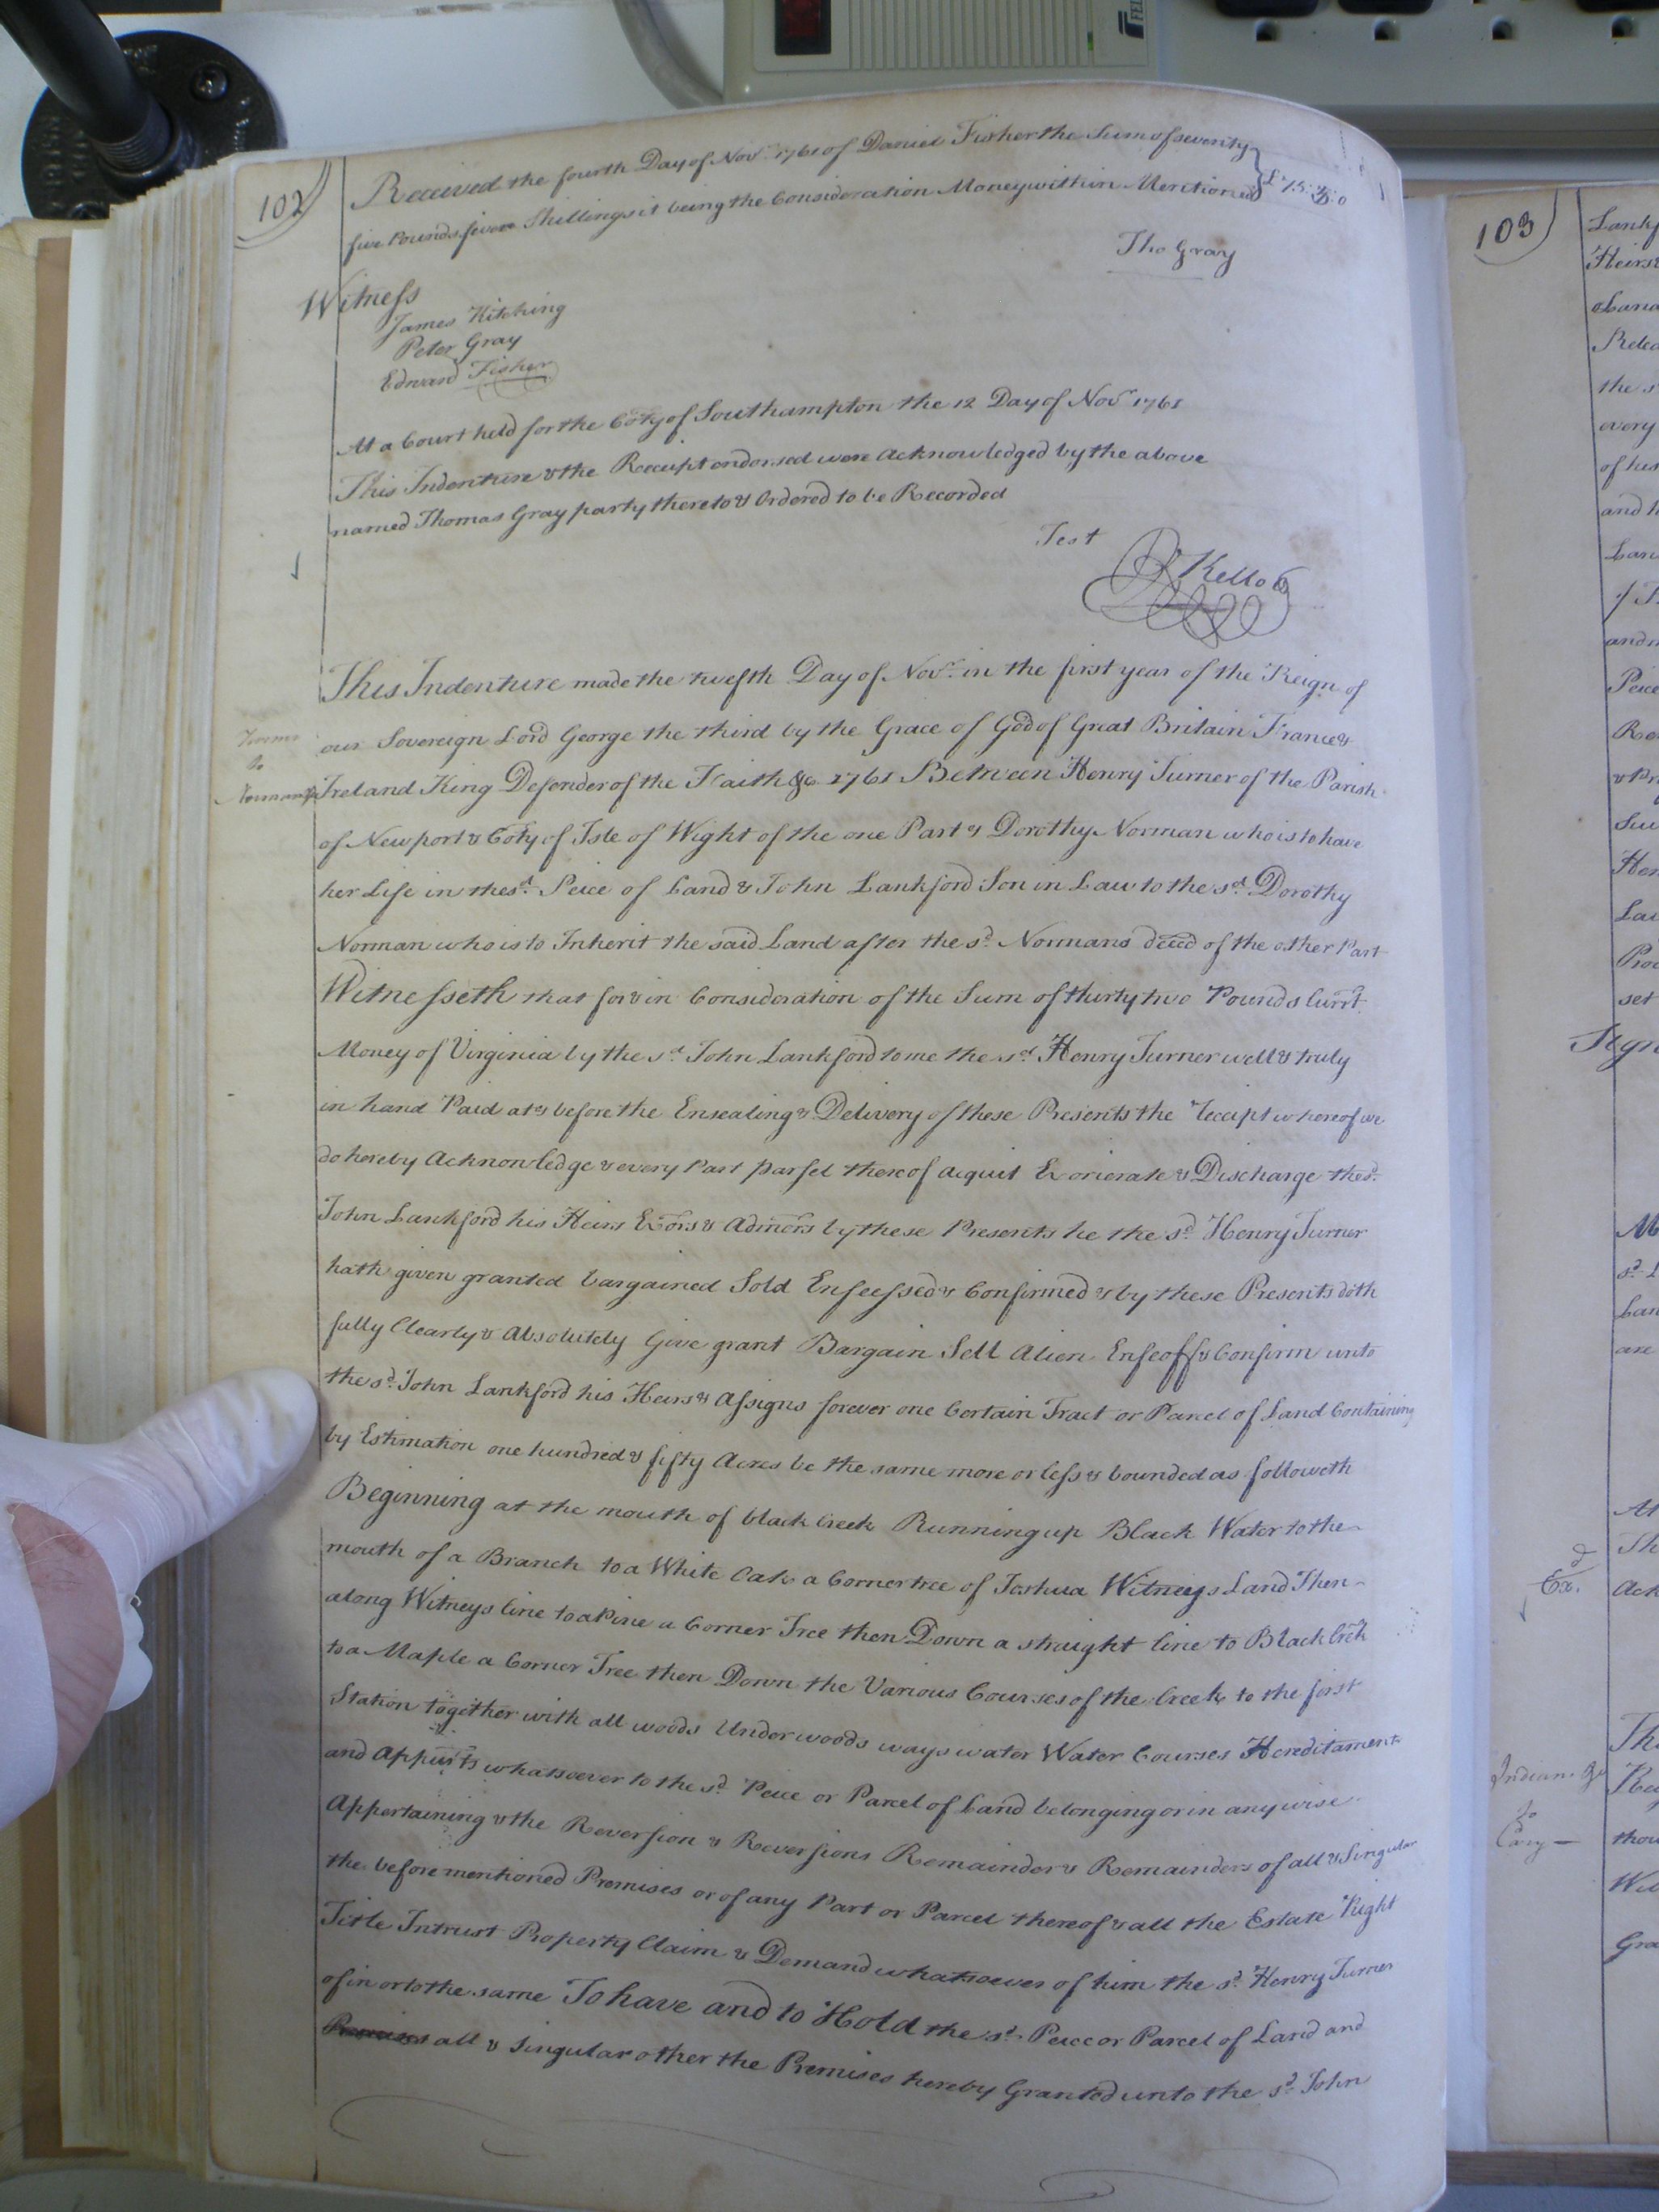 102
Received the fourth Day of Novr. 1761 of Daniel Fisher the Sum of seventy
five Pounds five Shillings it being the Consideration Money within Mentioned
Tho Gray
Witness
James Kitching
Peter Gray
Edward Fisher
At a Court held for the Coty of Southampton the 12 Day of Novr 1761
This Indenture & the Receipt endorsed were Acknowledged by the above
named Thomas Gray party thereto & Ordered to be Recorded
Test
R Kello C
This Indenture made the twefth Day of Novr. in the first year of the Reign of
our Sovereign Lord George the third by the Grace of God of Great Britain France &
to
Ireland King Defender of the Faith &c 1761 Between Henry Turner of the Parish
of Newport & Coty of Isle of Wight of the one Part & Dorothy Norman who is to have
her Life in the sd. Peice of Land & John Lankford Son in Law to the sd. Dorothy
Norman who is to Inherit the said Land after the sd. Normans deced of the other Part
Witnesseth that for & in Consideration of the Sum of thirty two Pounds Currt.
Money of Virginia by the sd. John Lankford to me the sd. Henry Turner well & truly
in hand Paid at & before the Ensealing & Delivery of these Presents the Receipt whereof we
do hereby Acknowledge & every Part parsel thereof acquit Exonerate & Discharge the sd.
John Lankford his Heirs Exors & Admors by these Presents he the sd. Henry Turner
hath given granted bargained Sold Enfeefsed & Confirmed & by these Presents doth
fully Clearly & Absolutely Give grant Bargain Sell Alien Enfeoff & Confirm unto
the sd. John Lankford his Heirs & Assigns forever one Certain Tract or Parcel of Land Containing
by Estimation one hundred & fifty Acres be the same more or less & bounded as followeth
Beginning at the mouth of black Creek Running up Black Water to the
mouth of a Branch to a White Oak a Corner tree of Joshua Witneys Land Then
along Witneys line to a Pine a Corner Tree then Down a straight line to Black Crek
to a Maple a Corner Tree then Down the Various Courses of the Creek to the first
Station together with all woods Underwoods ways water Water Courses Hereditaments
and Appurts whatsoever to the sd. Peice or Parcel of Land belonging or in any wise
Appertaining & the Reversion & Reversions Remainder & Remainders of all & Singular
the before mentioned Premises or of any Part or Parcel thereof & all the Estate Right
Title Intrust Property Claim & Demand whatsoever of him the sd. Henry Turner
of in or to the same To have and to Hold the sd. Peice or Parcel of Land and
all & Singular other the Premises hereby Granted unto the sd. John
103
Heirs
the s
every
of his
and h
set
Sign
are
At
Ex.
Ack
Indian
to
Cary
thou
Gra